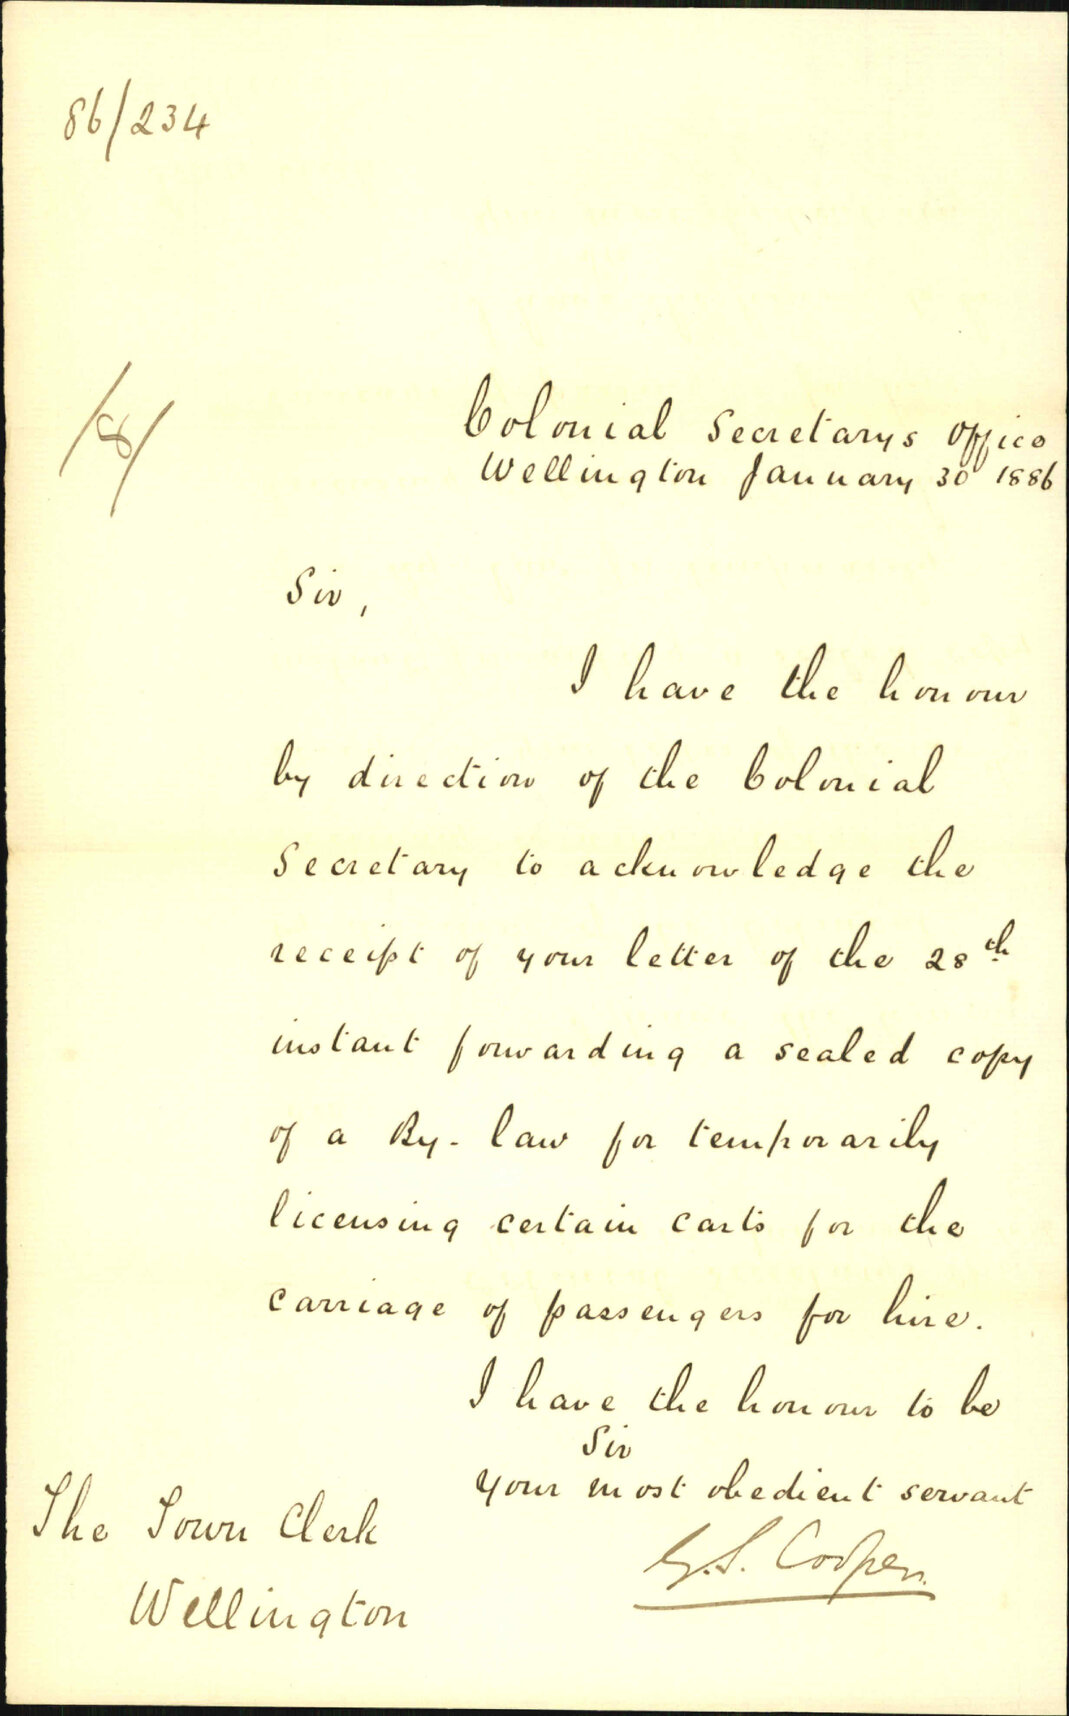 86/234
/8/
Colonial Secretarys Office
Wellington January 30 1886
Sir,
I have the honour
by direction of the Colonial
Secretary to acknowledge the
receipt of your letter of the 28th
instant forwarding a sealed copy
of a By-law for temporarily
licensing certain carts for the
carriage of passengers for hire.
I have the honour to be
Sir
Your most obedient servant
G.S. Cooper.
The Town Clerk
Wellington